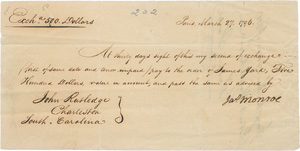 Exch. 500. Dollars
202
Paris March 27. 1796.
At thirty days sight of this my second of exchange
first of same date and tenor unpaid, pay to the order of James Yard, Five
Hundred Dollars value in account, and pass the same as advised by
John Rutledge
Charleston
South Carolina
Jas Monroe